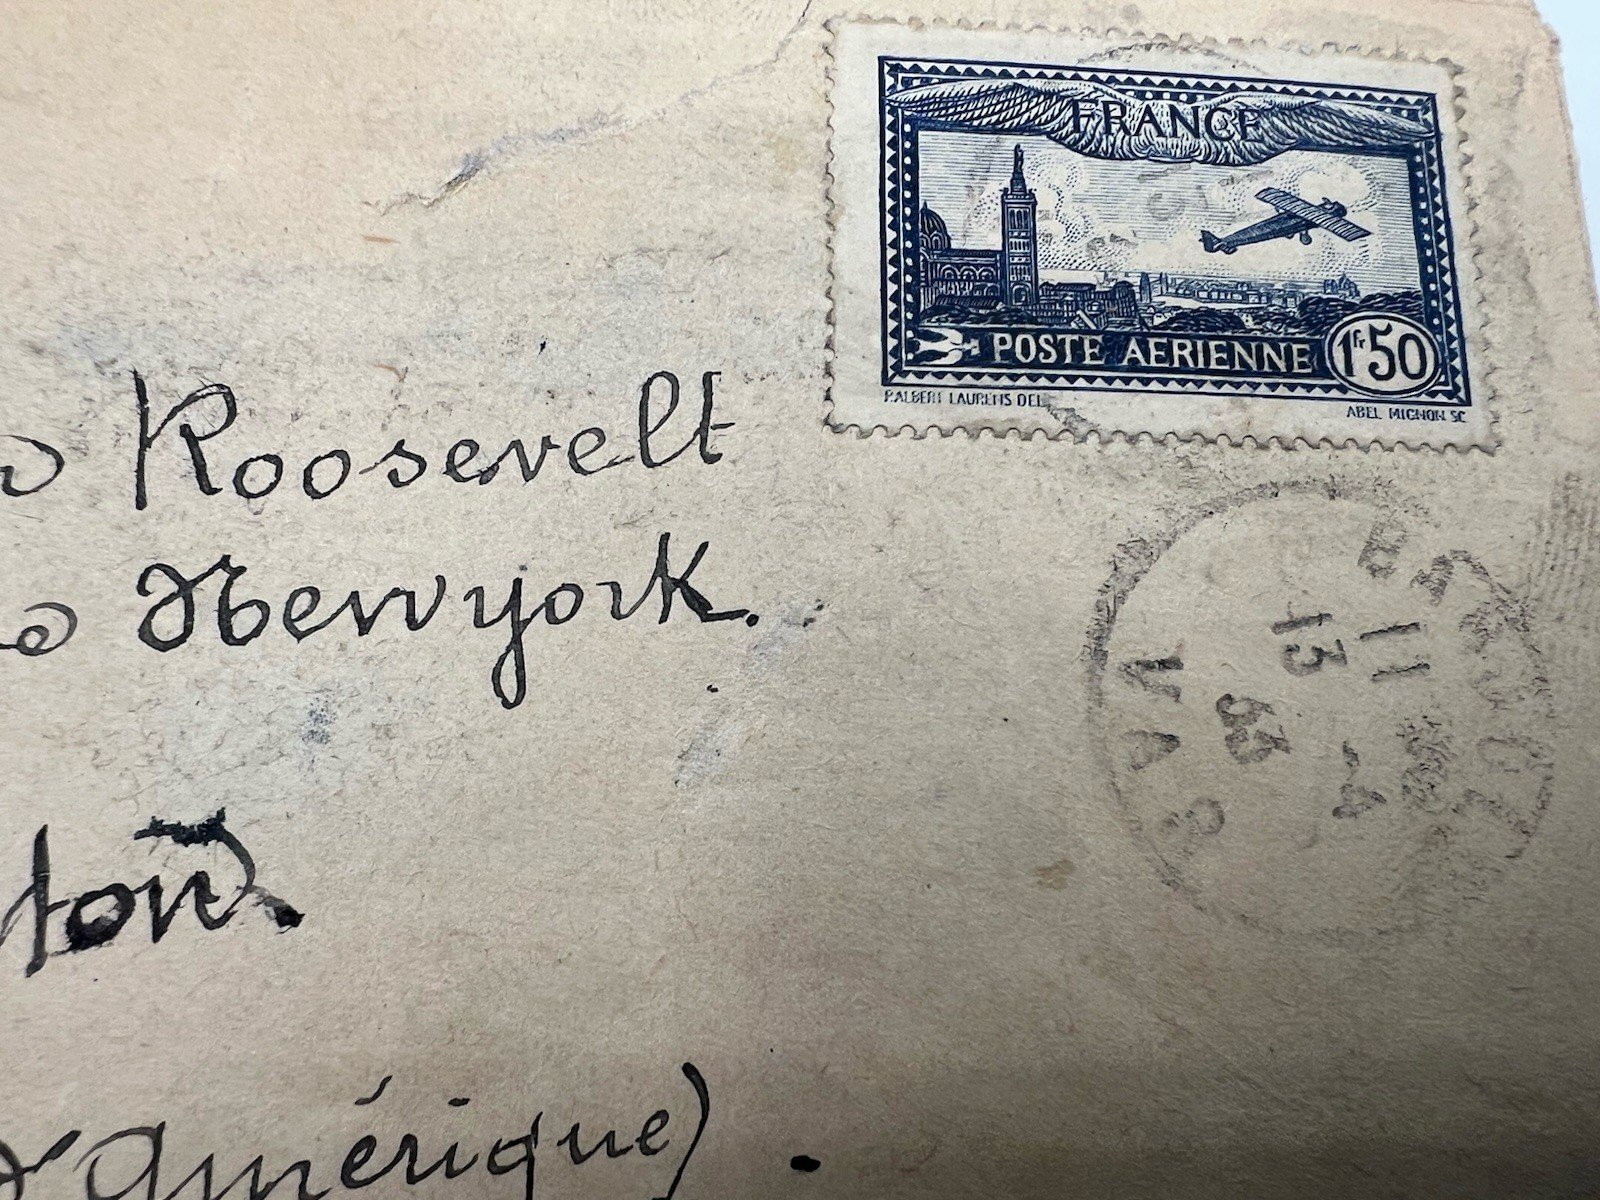 FRANCE
POSTE AERIENNE 1Fr50
P. ALBERT LAURENS DEL. ABEL MIGNON SC
Roosevelt
Newyork.
ton.
d'Amérique).
11
13 -1
33
VAR